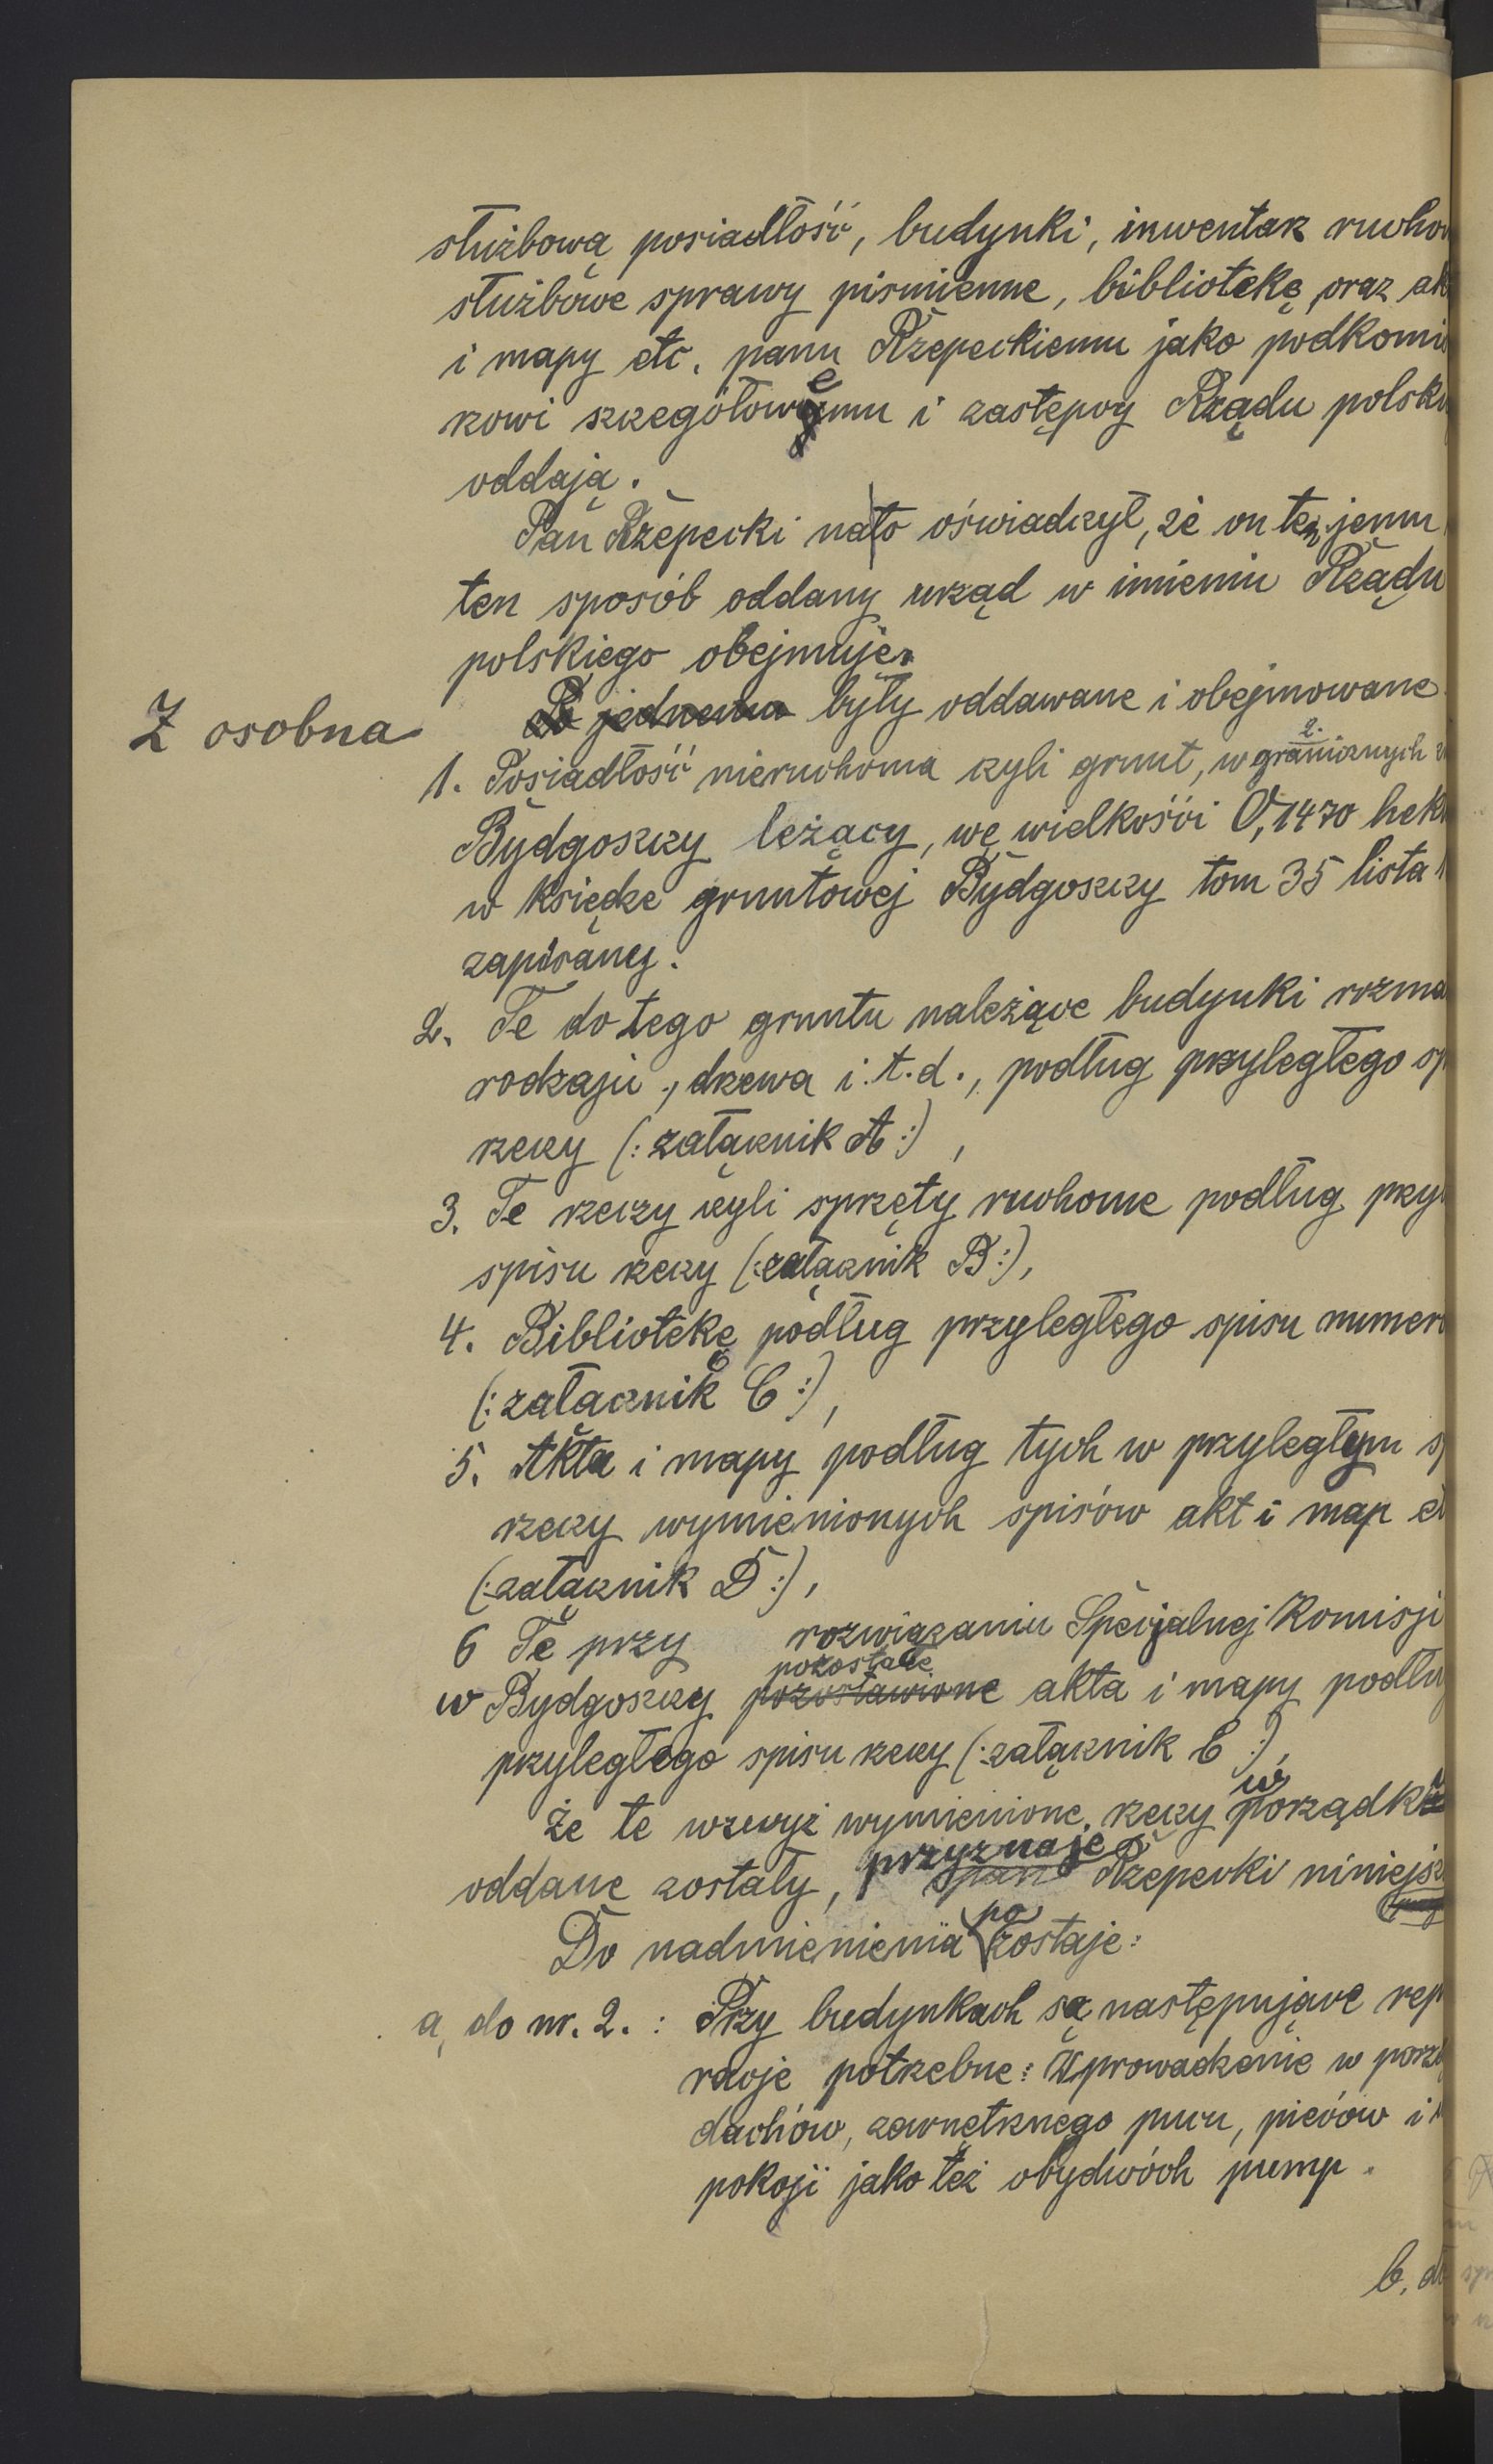 służbową posiadłość, budynki, inwentarz rucho
służbowe sprawy piśmienne, bibliotekę, oraz ak
i mapy etc. panu Rzepeckiemu jako podkomi
kowi szczegółowemu i zastępcy Rządu polsk
oddają.
Pan Rzepecki na to oświadczył, że on ten jemu
ten sposób oddany urząd w imieniu Rządu
polskiego obejmuje.
Z osobna
Po jednemu były oddawane i obejmowane
1. Posiadłość nieruchoma czyli grunt, w granicznych
Bydgoszczy leżący, we wielkości 0,1470 hek
w księdze gruntowej Bydgoszczy tom 35 lista
zapisany.
2. Te do tego gruntu należące budynki rozma
rodzaju, drzewa i t. d., podług przyległego sp
rzeczy (: załącznik A :),
3. Te rzeczy czyli sprzęty ruchome podług przyl
spisu rzeczy (: załącznik B :),
4. Bibliotekę podług przyległego spisu numer
(: załącznik C :),
5. Akta i mapy podług tych w przyległym sp
rzeczy wymienionych spisów akt i map et
(: załącznik D :),
6 Te przy rozwiązaniu Specjalnej Komisji
pozostałe
w Bydgoszczy pozostawione akta i mapy podłu
przyległego spisu rzeczy (: załącznik E :),
Że te wzwyż wymienione rzeczy w porządku
oddane zostały, przyznaje pan Rzepecki niniejsz
Do nadmienienia pozostaje:
a, do nr. 2. : Przy budynkach są następujące rep
racje potrzebne: Uprowadzenie w porzą
dachów, zewnętrznego pucu, pieców i
pokoji jako też obydwóch pump.
b, do